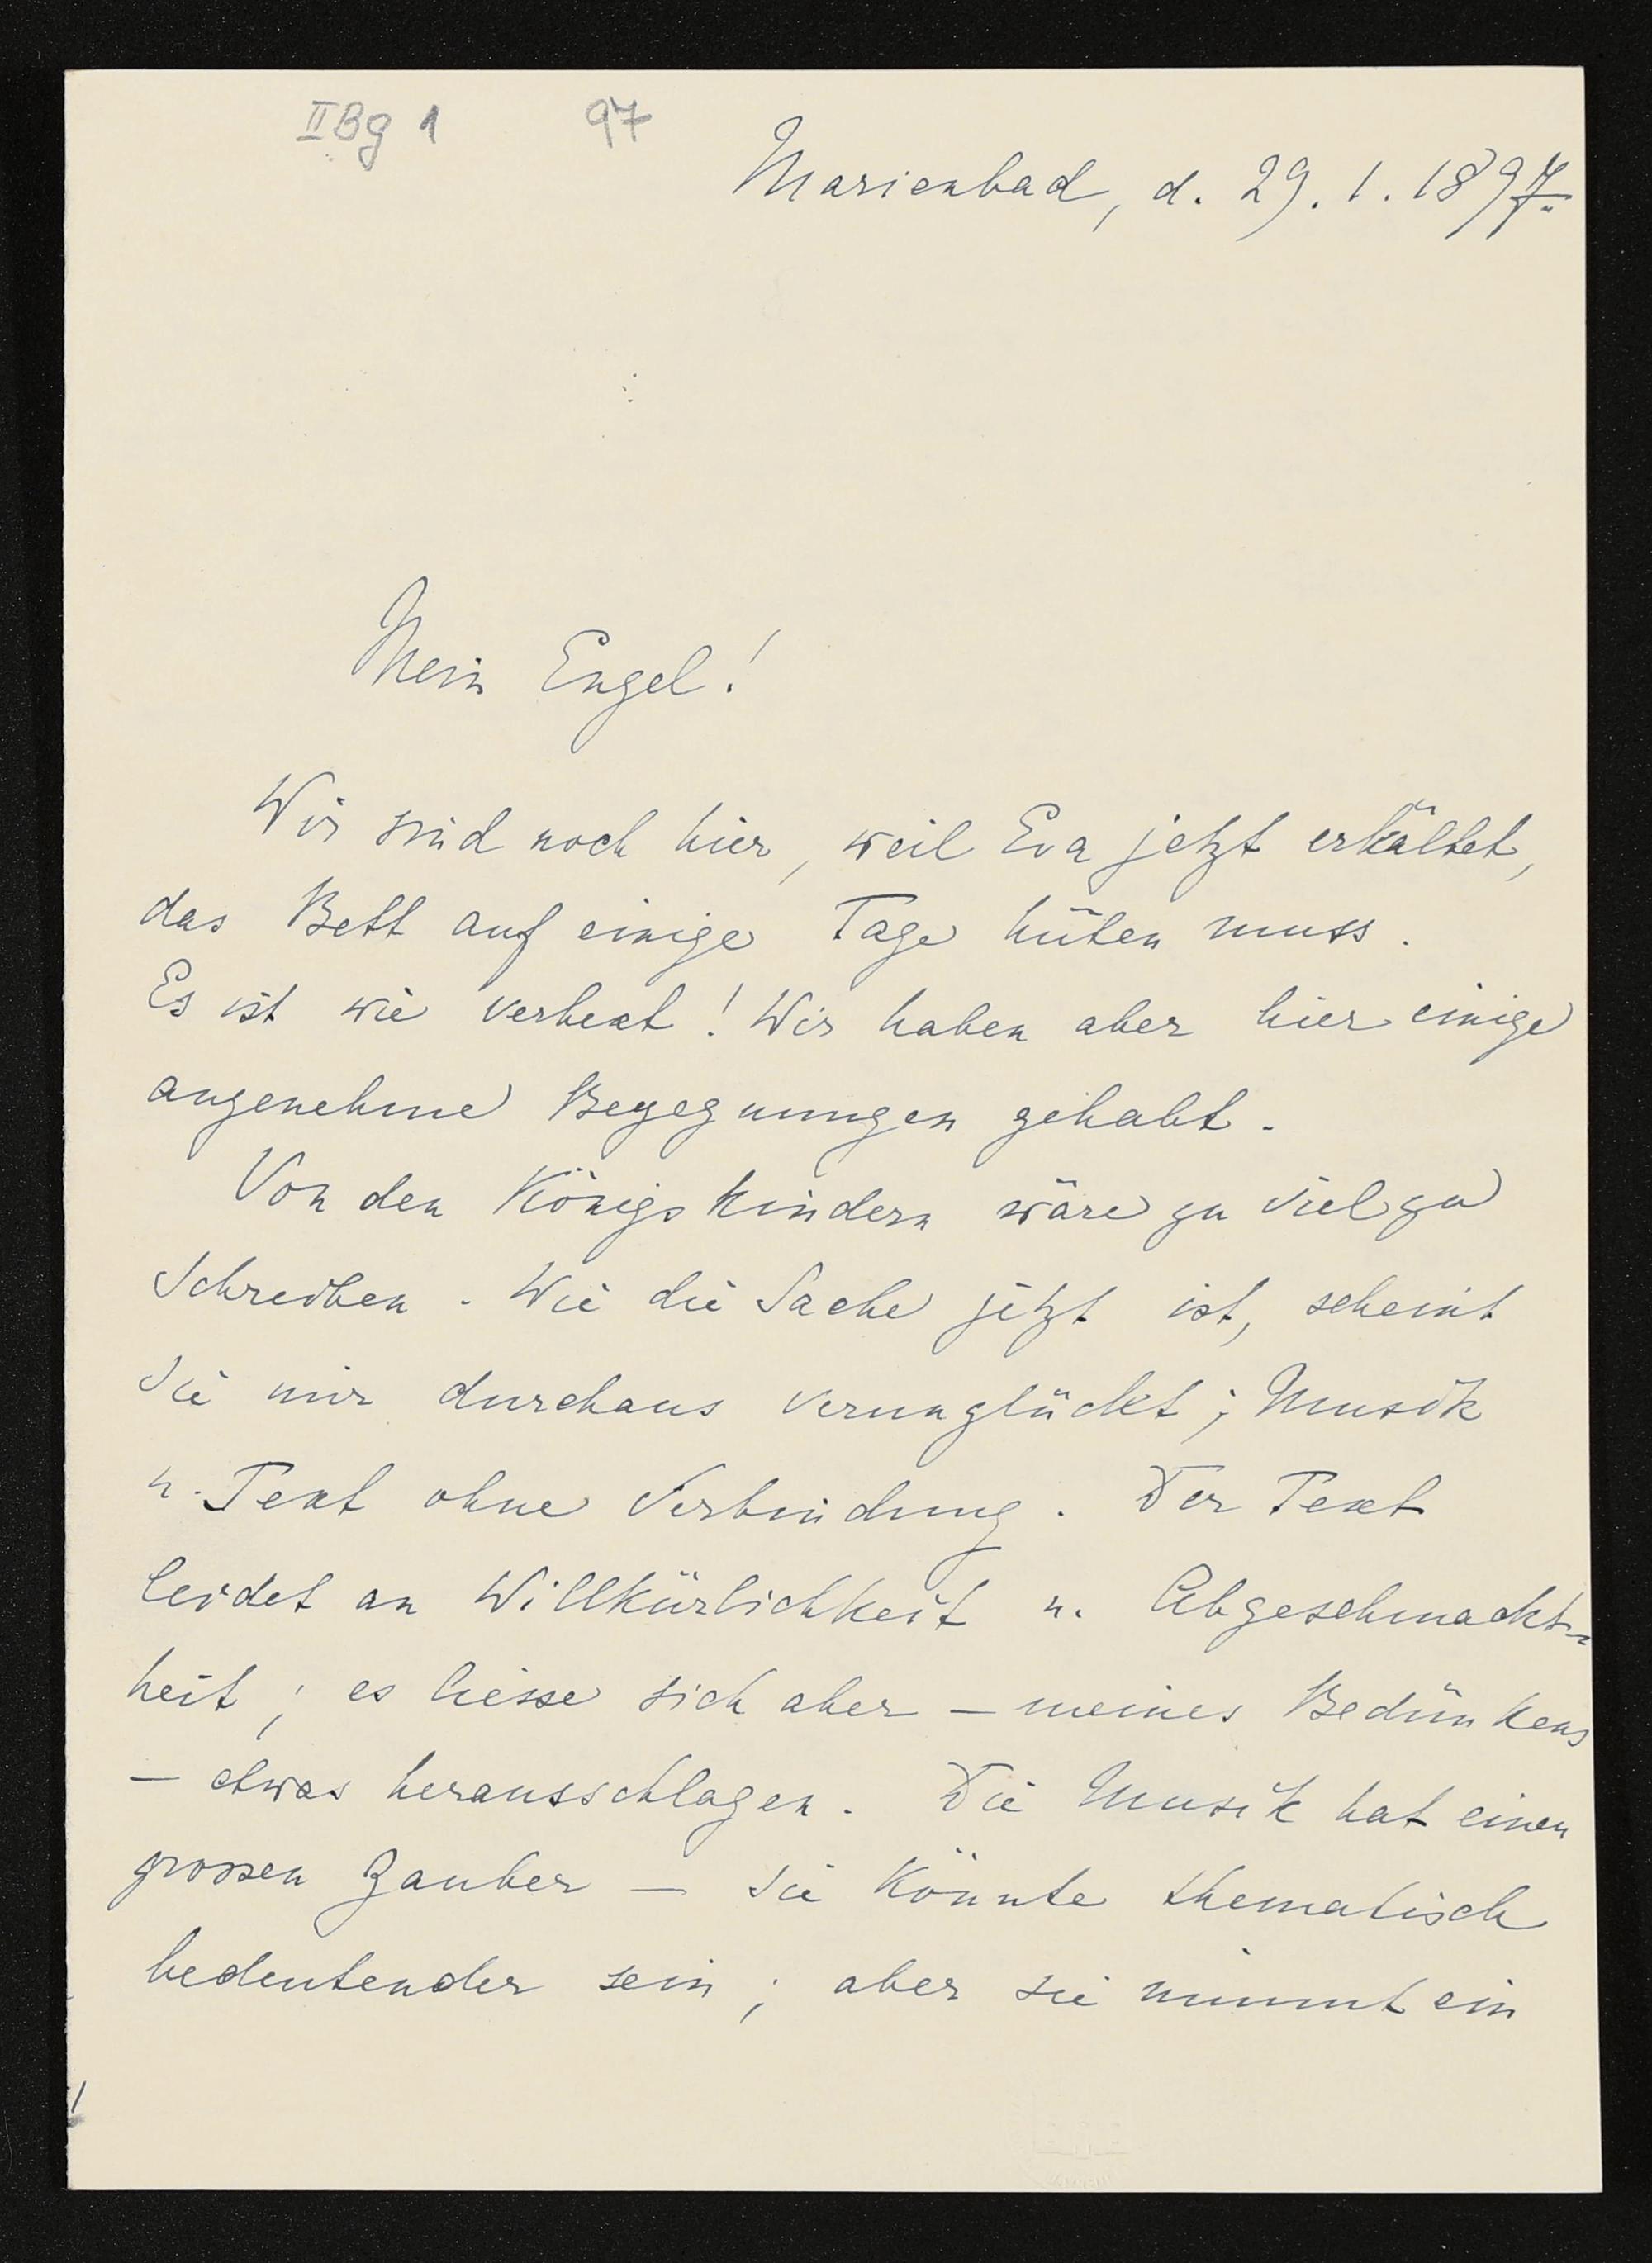 IIBg 1 97
Marienbad, d. 29. 1. 1897.
Mein Engel!
Wir sind noch hier, weil Eva jetzt erkältet,
das Bett auf einige Tage hüten muss.
Es ist wie verhext! Wir haben aber hier einige
angenehme Begegnungen gehabt.
Von den Königskindern wäre zu viel zu
schreiben. Wie die Sache jetzt ist, scheint
sie mir durchaus verunglückt; Musik
u. Text ohne Verbindung. Der Text
leidet an Willkürlichkeit u. Abgeschmackt-
heit; es liesse sich aber – meines Bedünkens
– etwas herausschlagen. Die Musik hat einen
grossen Zauber – sie könnte thematisch
bedeutender sein; aber sie nimmt ein